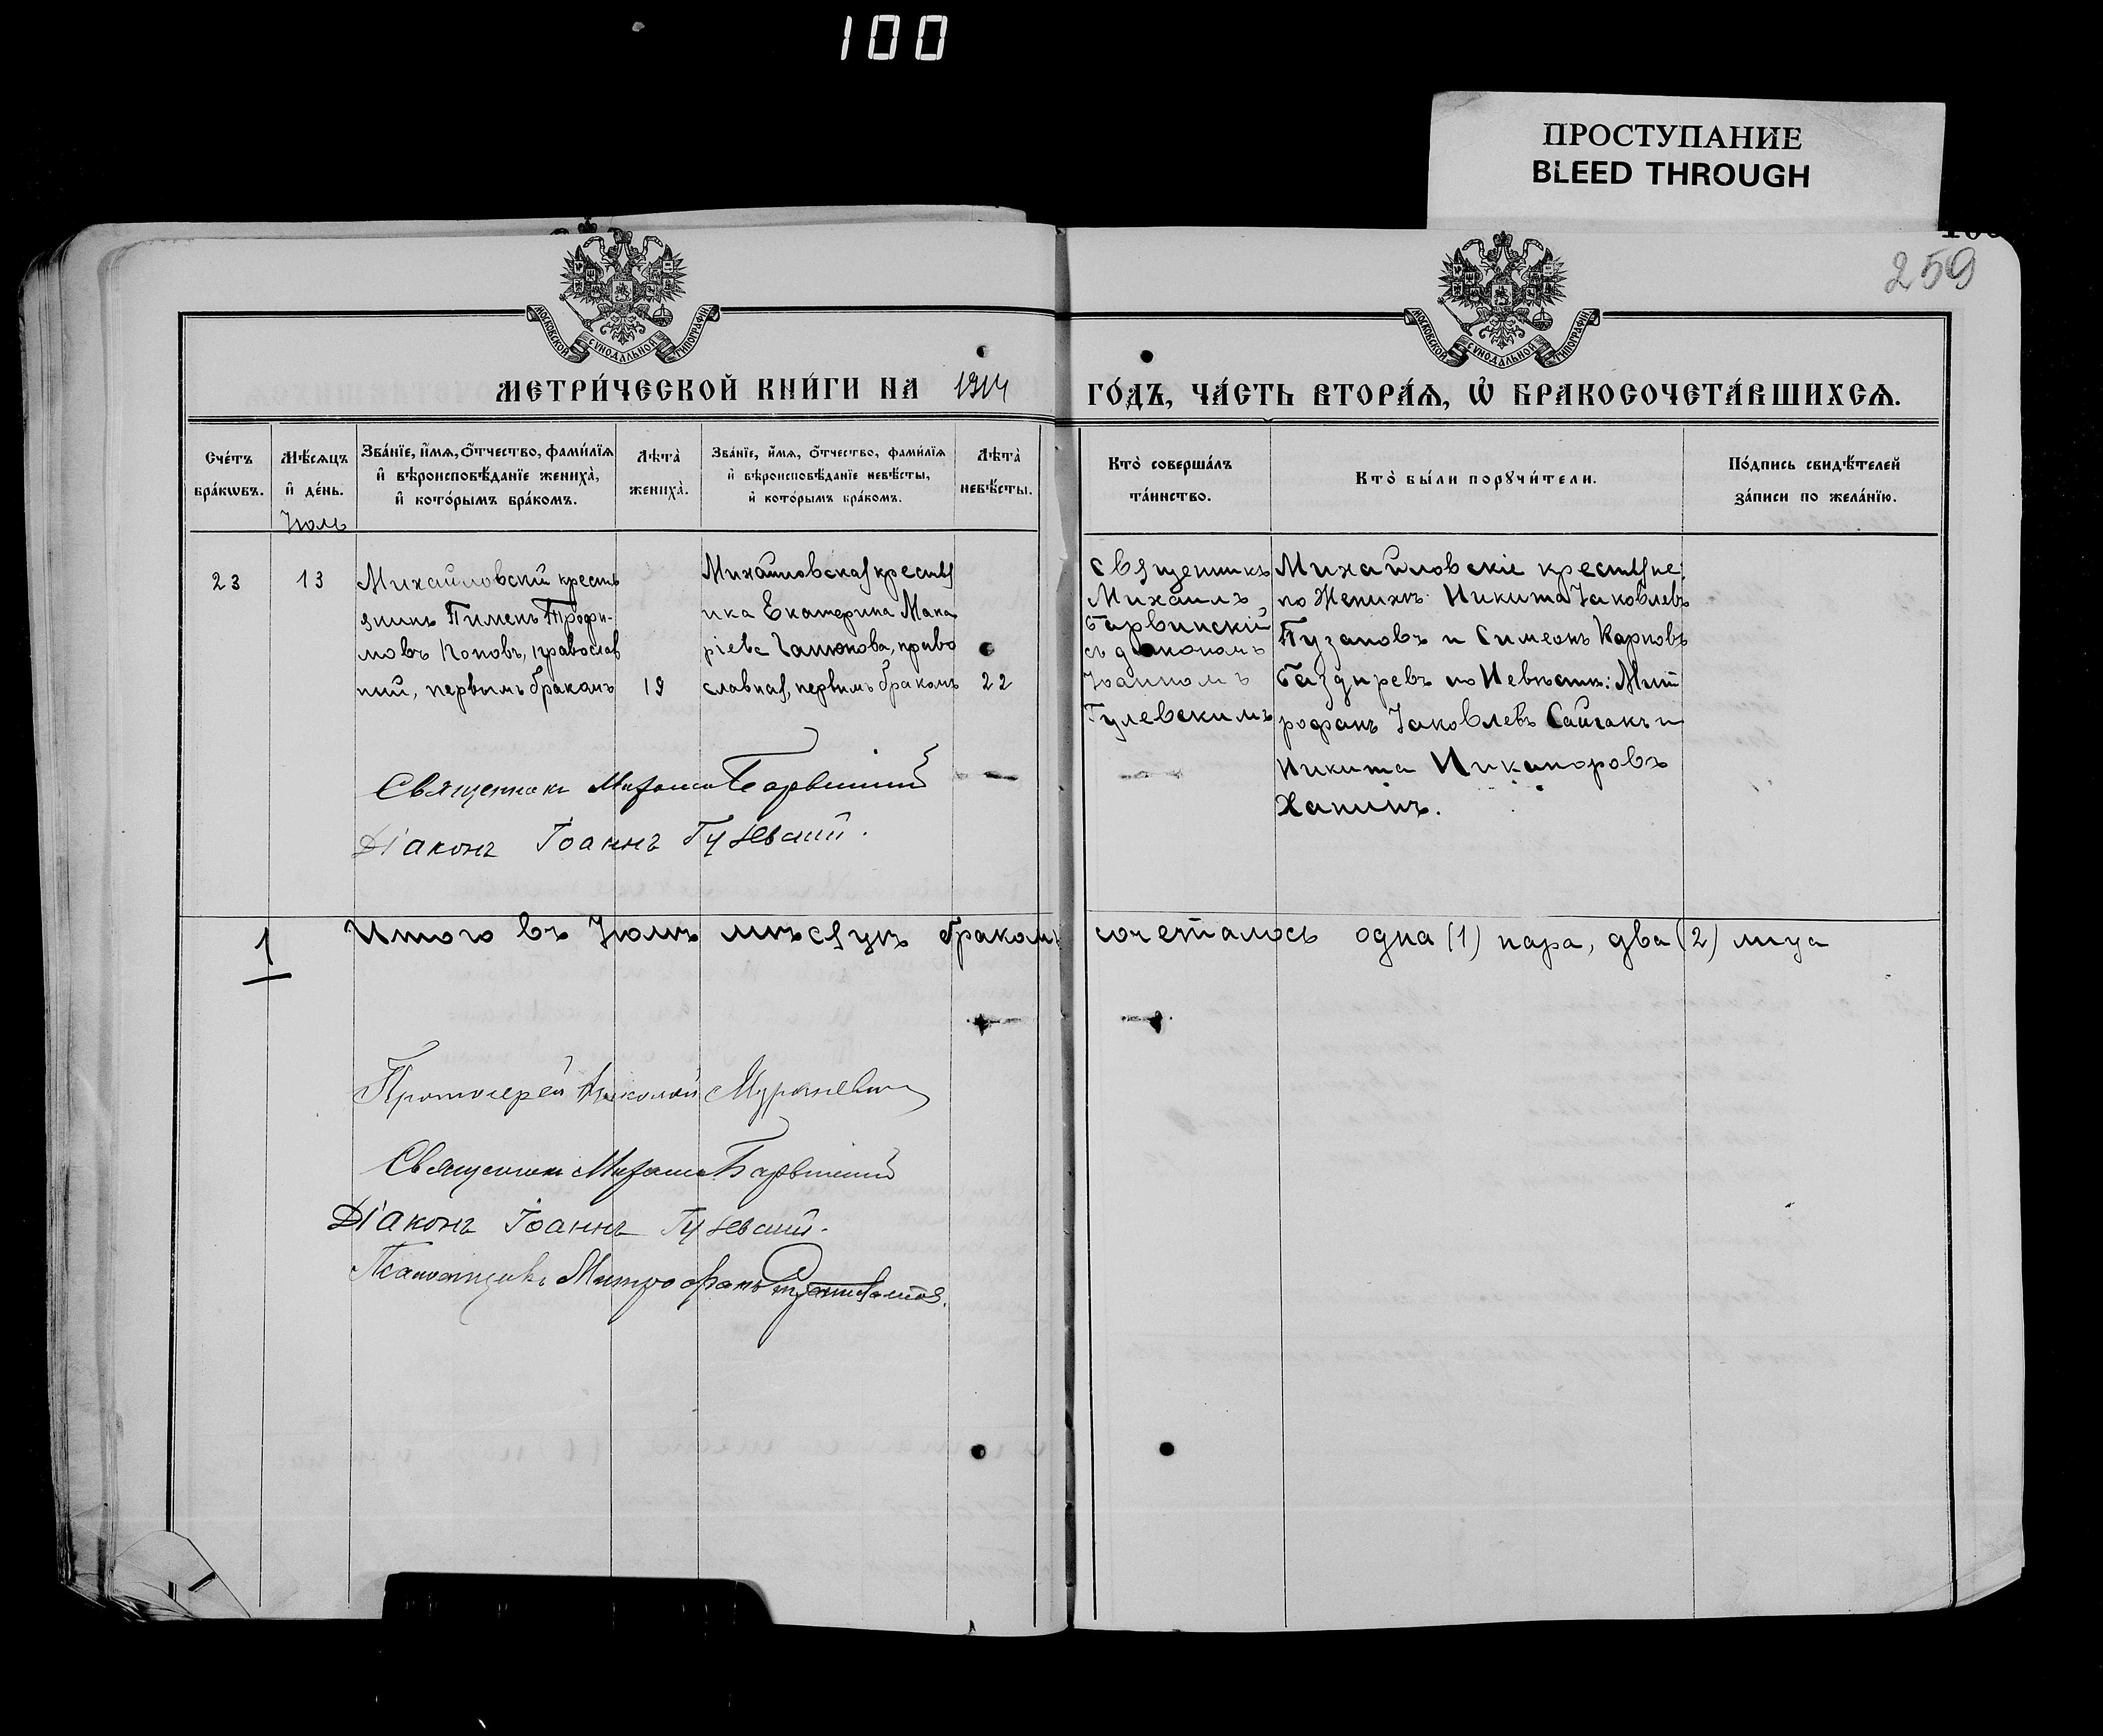 100
ПРОСТУПАНИЕ
BLEED THROUGH
259
МОСКОВСКОЙ СУНОДАЛЬНОЙ ТИПОГРАФИИ
МОСКОВСКОЙ СУНОДАЛЬНОЙ ТИПОГРАФИИ
МЕТРИ́ЧЕСКОЙ КНИ́ГИ НА 1914 ГО́ДЪ, ЧА́СТЬ ВТОРА́Ѧ, Ѡ҆ БРАКОСОЧЕТА́ВШИХСѦ.
Сче́тъ
бра́кѡвъ.
Мѣ́сѧцъ
и҆ де́нь.
Іюль
Зва́нїе, и҆́мѧ, ѻ҆́тчество, фами́лїѧ
и҆ вѣроисповѣ́данїе жениха̀,
и҆ кото́рымъ бра́комъ.
Лѣ́та̀
жениха̀.
Зва́нїе, и҆́мѧ, ѻ҆́тчество, фами́лїѧ
и҆ вѣроисповѣ́данїе невѣ́сты,
и҆ кото́рымъ бра́комъ.
Лѣ́та̀
невѣ́сты.
Кто̀ соверша́лъ
та́инство.
Кто̀ бы́ли порꙋчи́тели.
По́дпись свидѣ́телей
за́писи по жела́нїю.
23
13
Михайловскій кресть
янинъ Пименъ Трофи-
мовъ Коповъ, православ
ный, первымъ бракомъ
19
Михайловская крестья
нка Екатерина Мака
ріева, право
славная, первымъ бракомъ
22
Священникъ
Михаилъ
Барвинскій
съ діакономъ
Іоанномъ
Гулевскимъ
Михайловскіе крестьяне:
по Женихѣ: Никита Іаковлевъ
Пузановъ и Симеонъ Карповъ
Баздыревъ по Невѣстѣ: Мит
рофанъ Іаковлевъ Сайгакъ и
Никита Никаноровъ
Ханинъ.
Священникъ Михаилъ Барвинскій
Діаконъ Іоаннъ Гулевскій.
1
Итого въ Іюлѣ мѣсяцѣ бракомъ сочеталось одна (1) пара, два (2) лица
Протоіерей Николай
Священникъ Михаилъ Барвинскій
Діаконъ Іоаннъ Гулевскій.
Псаломщикъ Митрофанъ